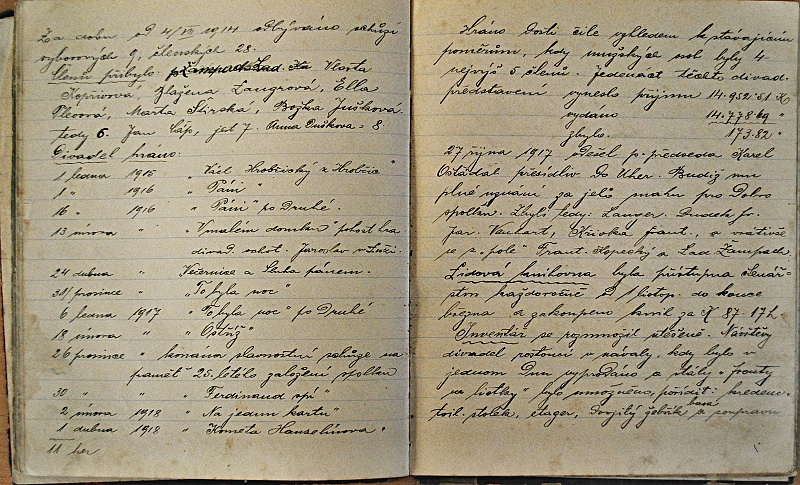 Za dobu od 4/VII 1914 odbýváno schůzí
výborových 9, členských 28.
Členů přibylo: Vlasta
Kopřivová, Blažena Langrová, Ella
Marta Stárská, Božka Jušková.
tedy 6. Jan Čáp, jest 7. Anna Cuškova = 8.
Divadel hráno:
1 ledna 1915 „Václ. Hrobčický z Hrobčic"
1 " 1916 „Páni"
16 " 1916 „Páni" po Druhé.
13 února " „V malém domku" pohost. hra
divad. ochot. Jaroslav
24 dubna " Večernice a Sluha pánem.
31/ prosince " „To byla noc"
6 ledna 1917 „To byla noc" po Druhé
18 února " „Ostříž"
26 prosince " konána slavnostní schůze na
paměť 25. letého založení spolku
30 " " „Ferdinand spí"
2 února 1918 „Na jednu kartu"
1 dubna 1918 „Kometa Hanselínova"
11 her
Hráno dosti čile vzhledem k stávajícím
poměrům, kdy mužských rol byly 4
nejvýš 5 členů. Jedenáct těchto divad.
představení vyneslo příjmu 14.952·51 K
vydáno 14.778·69 "
zbylo. 173.82 "
27 října 1917 odešel p. předseda Karel
Ostádal přesídliv do Uher. Budiž mu
plné uznání za jeho snahu pro Dobro
spolkú. Zbyli tedy: Langer. Dudek fr.
Jar. Vanhart, Křička Frant., a vrátivše
se z „pole" Frant. Kopecký a Lad Žampach.
Lidová knihovna byla přístupna čtenář-
stvu každoročně od 1 listop. do konce
března a zakoupeno knih za K 87·17 h.
Inventář se rozmnožil utěšeně. Návštěvy
divadel rostoucí v návaly, kdy bylo v
jednom dnu vyprodáno a stály „fronty
na lístky" bylo umožněno, pořídit: kredenc,
toil. stolek, etager, dvojitý žebřík a soupravu